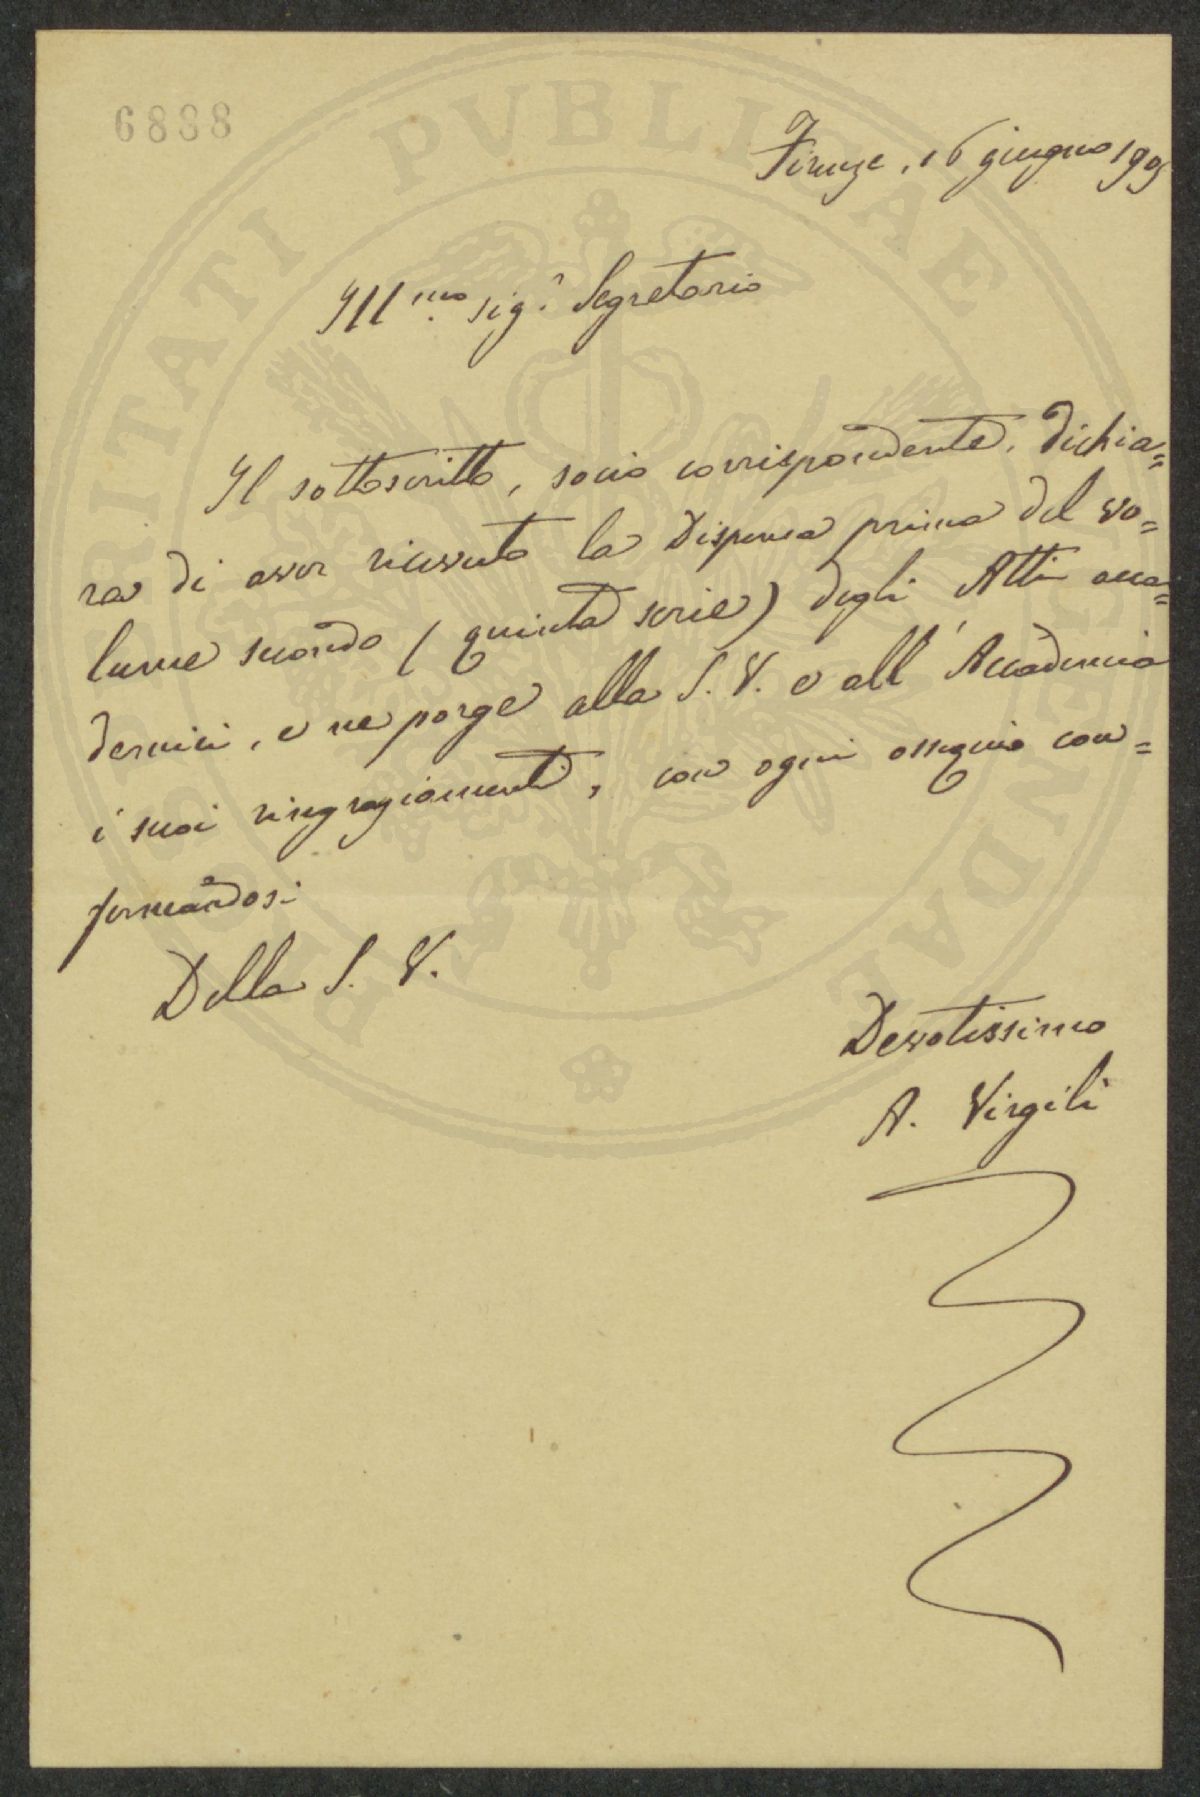 6888
Firenze, 16 giugno 1905
Ill.mo sig.r Segretario
Il sottoscritto, socio corrispondente, dichia=
ra di aver ricevuto la Dispensa prima del vo=
lume secondo (quinta serie) degli Atti acca=
demici, e ne porge alla S. V. e all'Accademia
i suoi ringraziamenti, con ogni ossequio con=
fermandosi
Della S. V.
Devotissimo
A. Virgili
PROSPERITATI PUBLICAE AUGENDAE